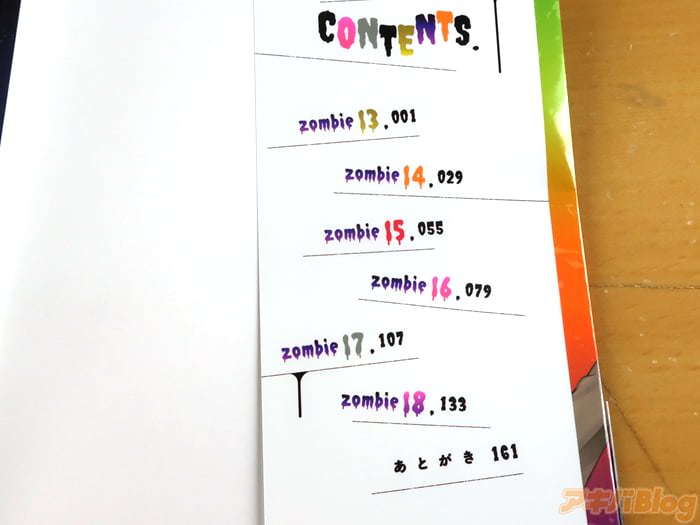 CONTENTS.
zombie 13.001
zombie 14.029
zombie 15.055
zombie 16.079
zombie 17.107
zombie 18.133
あとがき 161
アキバBlog